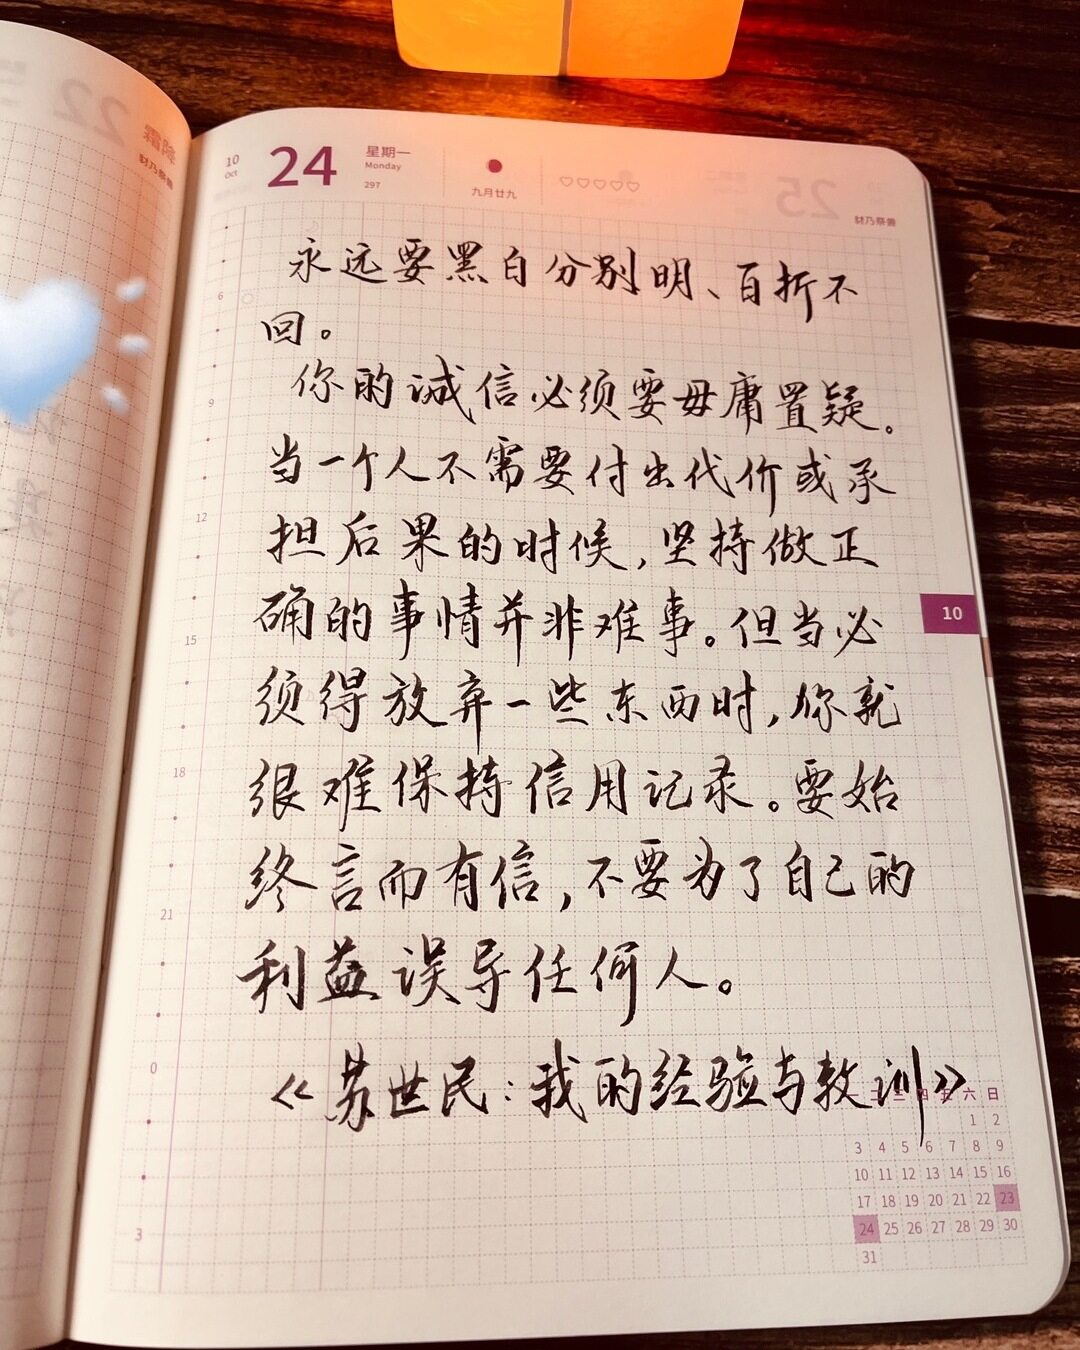 10
Oct
24
星期一
Monday
297
九月廿九
25
财乃祭兽
22
永远要黑白分别明、百折不
回。
你的诚信必须要毋庸置疑。
当一个人不需要付出代价或承
担后果的时候,坚持做正
确的事情并非难事。但当必
须得放弃一些东西时,你就
很难保持信用记录。要始
终言而有信,不要为了自己的
利益误导任何人。
《苏世民:我的经验与教训》
6
9
12
15
18
21
0
3
10
二 三 四 五 六 日
1 2
3 4 5 6 7 8 9
10 11 12 13 14 15 16
17 18 19 20 21 22 23
24 25 26 27 28 29 30
31